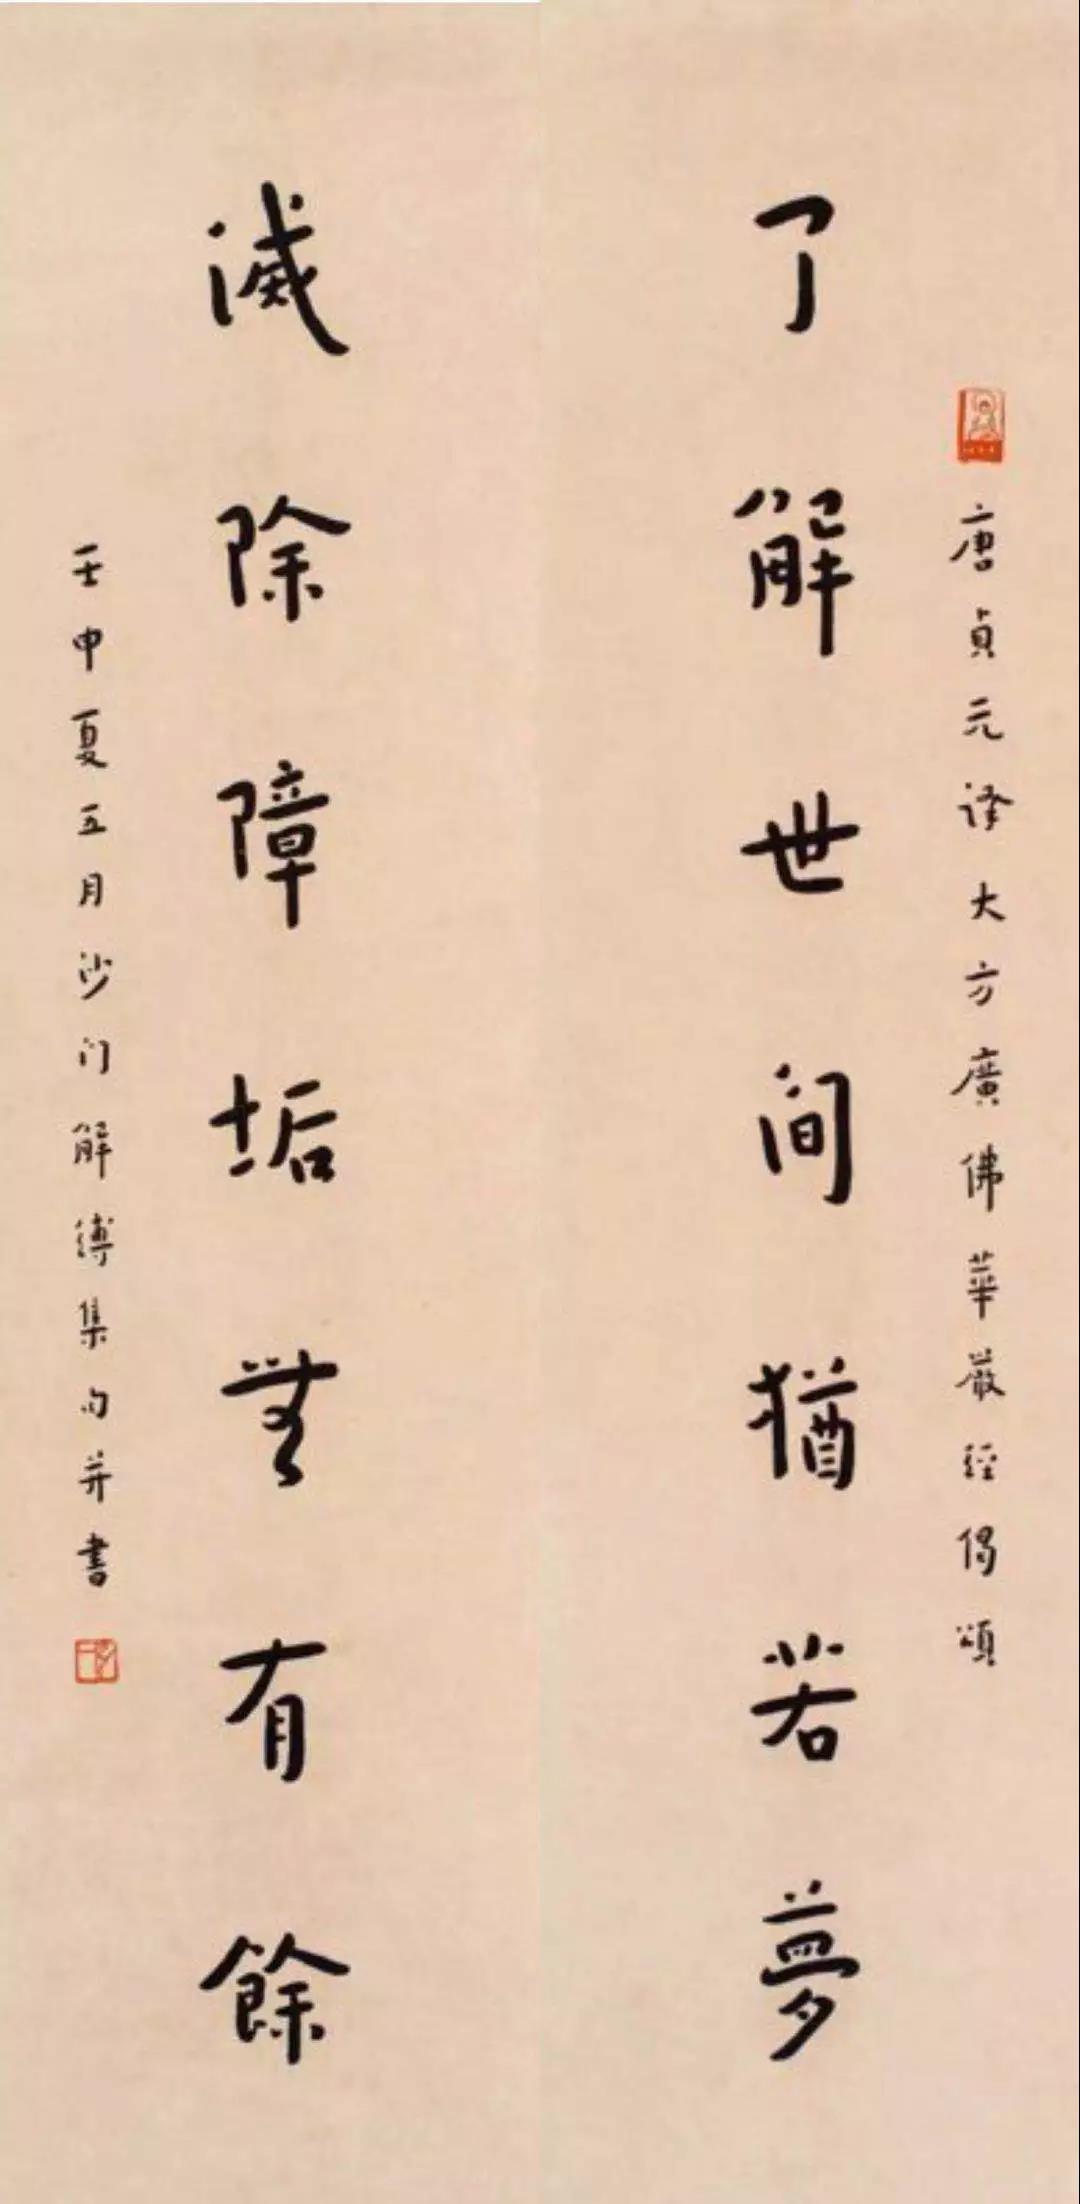 唐貞元译大方廣佛華嚴經偈頌
了解世间猶若夢
滅除障垢無有餘
壬申夏五月沙门解縛集句并書